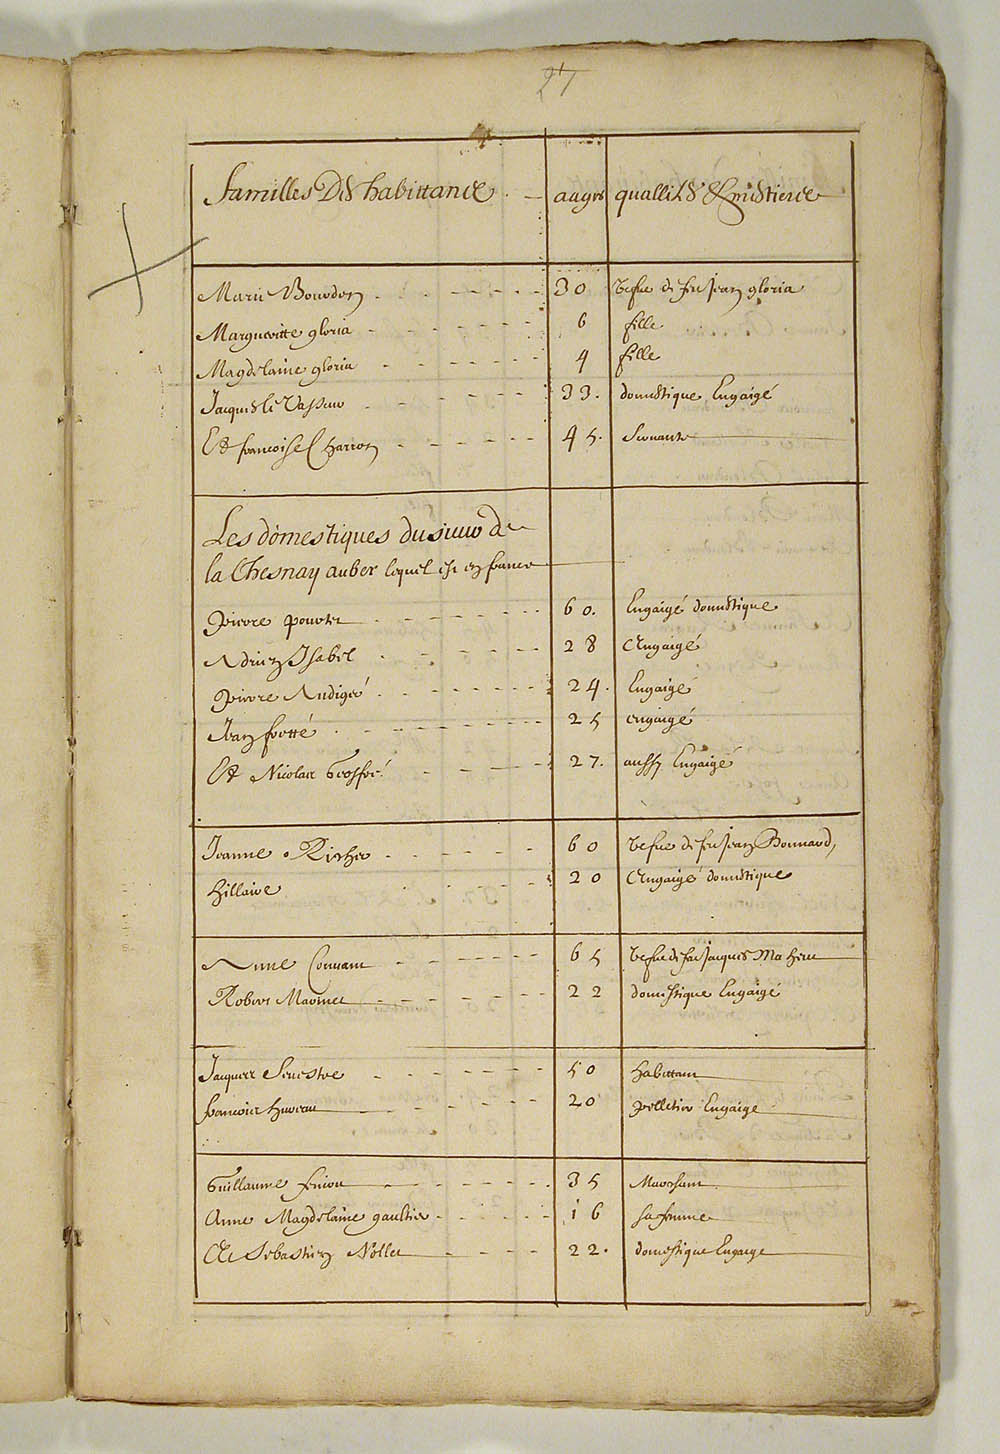 27
familles Des habittance aages quallités & mestierce
Marie Bourdon 30 vefue de feu Jean gloria
Margueritte gloria 6 fille
Magdelaine gloria 4 fille
Jacques le Vasseur 33. domestique Engaigé
Et francoise Charron 45. Seruante
Les domestiques du sieur de
la Chesnay auber lequel est en france
Pierre 60. Engaigé domestique
Adrien Isabel 28 Engaigé
Pierre Audigeé 24. Engaigé
Jean frotté 25 engaigé
Et Nicolas Grosfré. 27. aussy Engaigé
Jeanne Richer 60 vefue de feu Jean Bonnard
Hillaire 20 Engaigé domestique
Anne Conuam 65 vefue de feu Jacques Maheu
Robert Marinet 22 domestique Engaigé
Jacques Seuestre 50 habittant
francois hureau 20 pelletier Engaige
Guillaume feniou 35 Marchant
Anne Magdelaine gaultier i6 sa femme
Et Sebastien Nollet 22. domestique Engaige